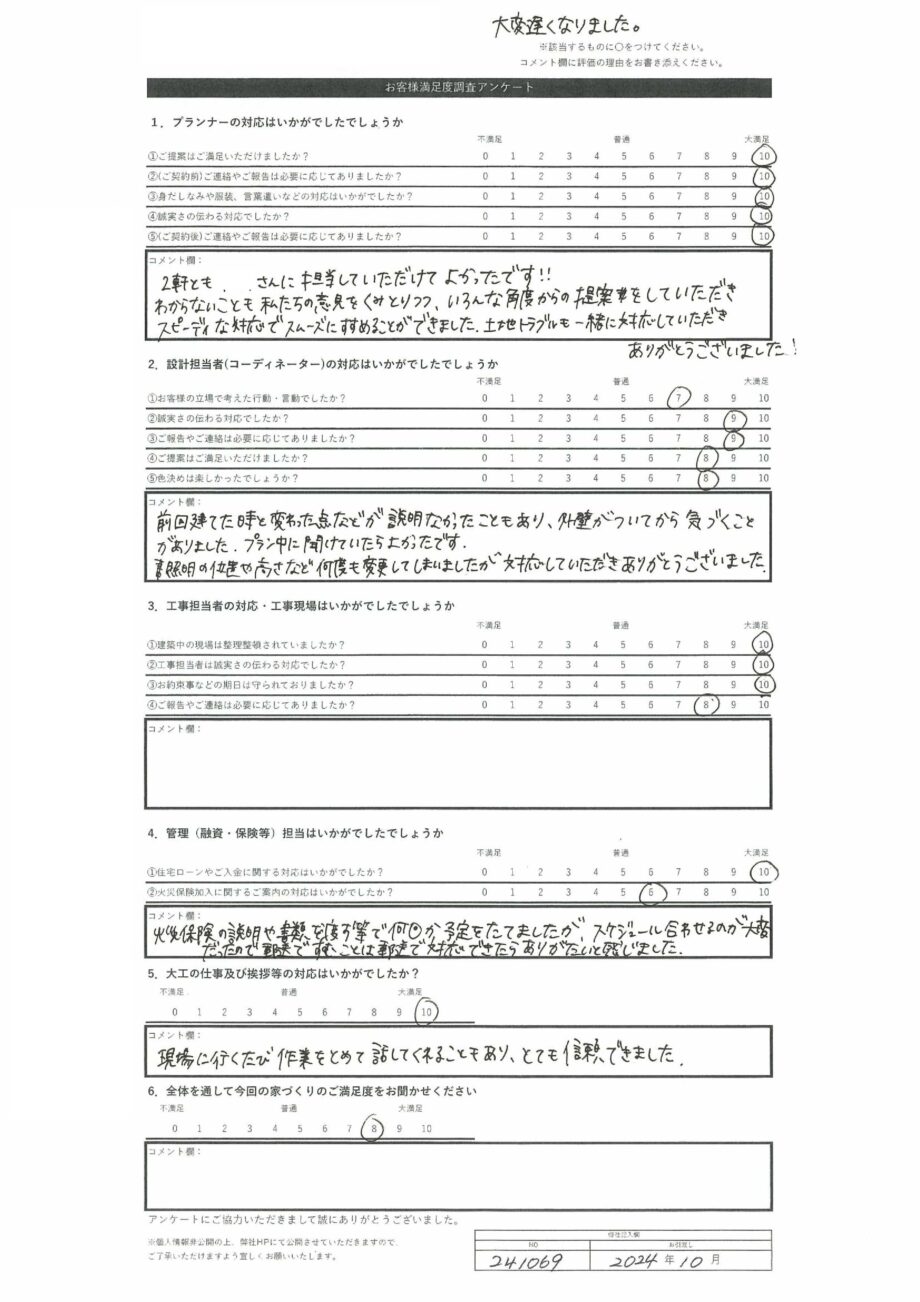 大変遅くなりました。
※該当するものに〇をつけてください。
コメント欄に評価の理由をお書き添えください。
お客様満足度調査アンケート
1．プランナーの対応はいかがでしたでしょうか
不満足 普通 大満足
①ご提案はご満足いただけましたか？ 0 1 2 3 4 5 6 7 8 9 10
②(ご契約前)ご連絡やご報告は必要に応じてありましたか？ 0 1 2 3 4 5 6 7 8 9 10
③身だしなみや服装、言葉遣いなどの対応はいかがでしたか？ 0 1 2 3 4 5 6 7 8 9 10
④誠実さの伝わる対応でしたか？ 0 1 2 3 4 5 6 7 8 9 10
⑤(ご契約後)ご連絡やご報告は必要に応じてありましたか？ 0 1 2 3 4 5 6 7 8 9 10
コメント欄：
2軒とも . . さんに担当していただけてよかったです!!
わからないことも私たちの意見をくみとりつつ、いろんな角度からの提案をしていただき
スピーディな対応でスムーズにすすめることができました.土地トラブルも一緒に対応していただき
ありがとうございました!
2．設計担当者(コーディネーター)の対応はいかがでしたでしょうか
不満足 普通 大満足
①お客様の立場で考えた行動・言動でしたか？ 0 1 2 3 4 5 6 7 8 9 10
②誠実さの伝わる対応でしたか？ 0 1 2 3 4 5 6 7 8 9 10
③ご報告やご連絡は必要に応じてありましたか？ 0 1 2 3 4 5 6 7 8 9 10
④ご提案はご満足いただけましたか？ 0 1 2 3 4 5 6 7 8 9 10
⑤色決めは楽しかったでしょうか？ 0 1 2 3 4 5 6 7 8 9 10
コメント欄：
前回建てた時と変わった点などが説明なかったこともあり、外壁がついてから気づくこと
がありました.プラン中に聞けていたらよかったです.
照明の位置や高さなど何度も変更してしまいましたが対応していただきありがとうございました.
3．工事担当者の対応・工事現場はいかがでしたでしょうか
不満足 普通 大満足
①建築中の現場は整理整頓されていましたか？ 0 1 2 3 4 5 6 7 8 9 10
②工事担当者は誠実さの伝わる対応でしたか？ 0 1 2 3 4 5 6 7 8 9 10
③お約束事などの期日は守られておりましたか？ 0 1 2 3 4 5 6 7 8 9 10
④ご報告やご連絡は必要に応じてありましたか？ 0 1 2 3 4 5 6 7 8 9 10
コメント欄：
4．管理（融資・保険等）担当はいかがでしたでしょうか
不満足 普通 大満足
①住宅ローンやご入金に関する対応はいかがでしたか？ 0 1 2 3 4 5 6 7 8 9 10
②火災保険加入に関するご案内の対応はいかがでしたか？ 0 1 2 3 4 5 6 7 8 9 10
コメント欄：
火災保険の説明や書類を渡す等で何回か予定をたてましたが、スケジュール合わせるのが大変
だったので郵送ですむことは郵送で対応できたらありがたいと感じました.
5．大工の仕事及び挨拶等の対応はいかがでしたか？
不満足 普通 大満足
0 1 2 3 4 5 6 7 8 9 10
コメント欄：
現場に行くたび作業をとめて話してくれることもあり、とても信頼できました.
6．全体を通して今回の家づくりのご満足度をお聞かせください
不満足 普通 大満足
0 1 2 3 4 5 6 7 8 9 10
コメント欄：
アンケートにご協力いただきまして誠にありがとうございました。
※個人情報非公開の上、弊社HPにて公開させていただきますので、
ご了承いただけますよう宜しくお願いいたします。
弊社記入欄
NO お引渡し
241069 2024 年 10 月